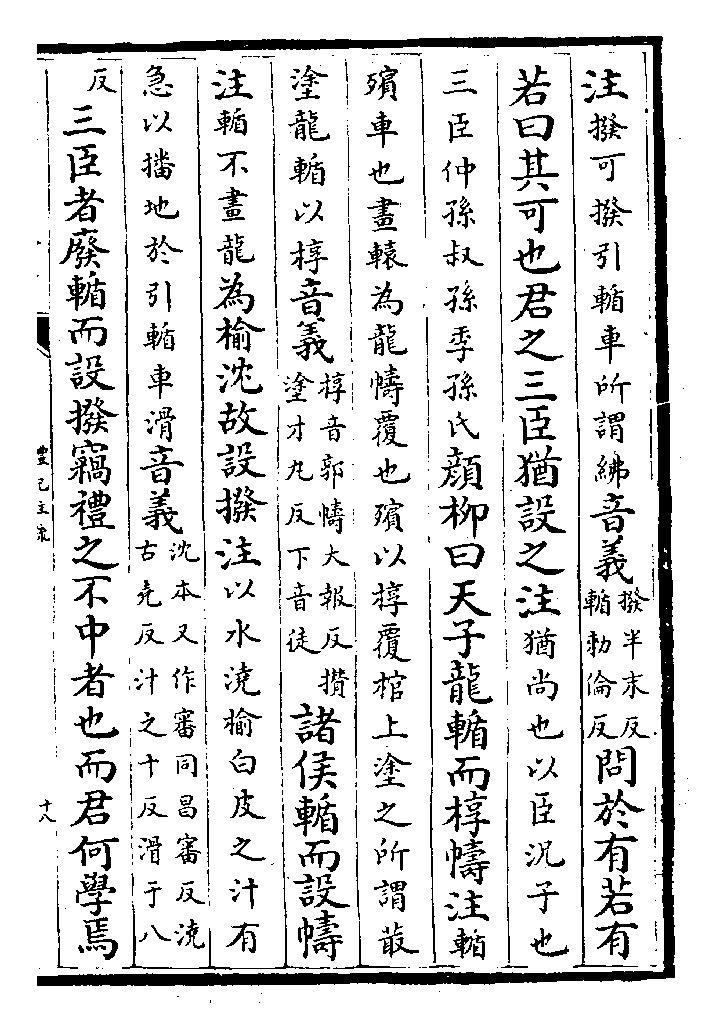 注撥可撥引輴車所謂紼音義撥半末反輴勑倫反問於有若有
若曰其可也君之三臣猶設之注猶尚也以臣況子也
三臣仲孫叔孫季孫氏顏柳曰天子龍輴而椁幬注輴
殯車也畫轅為龍幬覆也殯以椁覆棺上塗之所謂菆
塗龍輴以椁音義椁音郭幬大報反攢塗才丸反下音徒諸侯輴而設幬
注輴不畫龍為榆沈故設撥注以水澆榆白皮之汁有
急以播地於引輴車滑音義沈本又作審同昌審反澆古堯反汁之十反滑于八
反三臣者廢輴而設撥竊禮之不中者也而君何學焉
十八